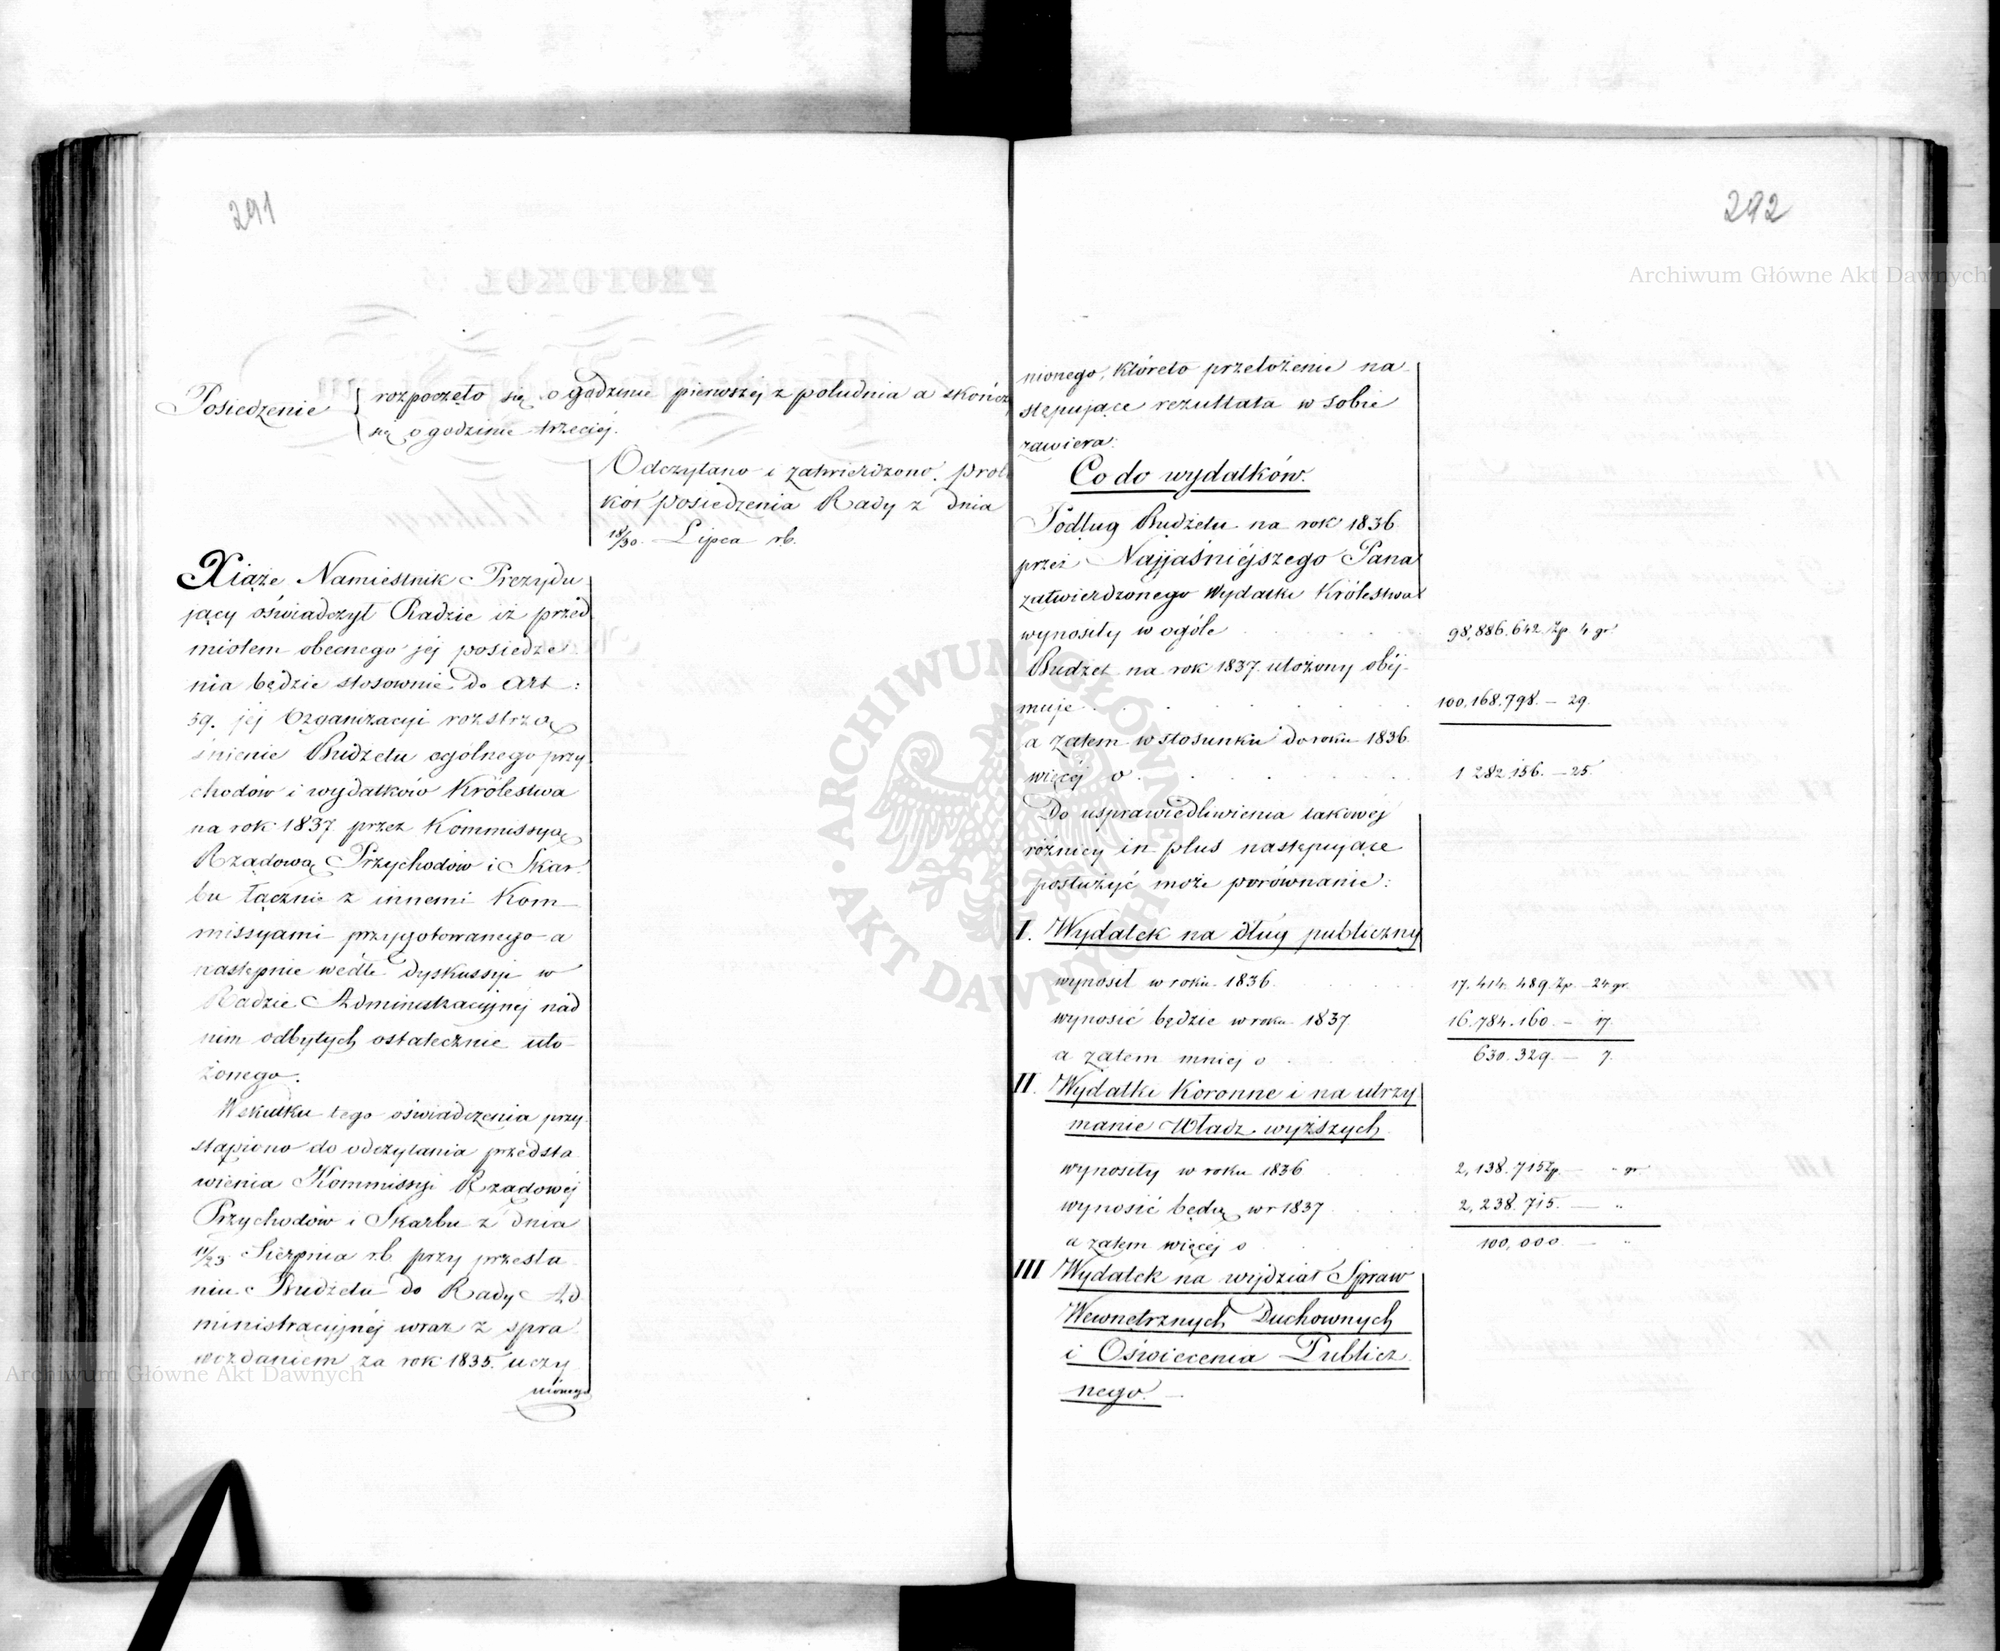 291
Posiedzenie
rozpoczęto się o godzinie pierwszej z południa a skończ
się o godzinie trzeciej.
Odczytano i zatwierdzono prot
kół posiedzenia Rady z dnia
18/30 Lipca rb.
Xiąże Namiestnik Prezydu
jący oświadczył Radzie iż przed
miotem obecnego jej posiedze
nia będzie stosownie do Art:
59. jej Organizacyi roztrzą
śnienie Budżetu ogólnego przy
chodów i wydatków Królestwa
na rok 1837 przez Kommissyą
Rządową Przychodów i Skar
bu łącznie z innemi Kom
missyami przygotowanego a
następnie wedle dyskussyi w
Radzie Administracyjnej nad
nim odbytych ostatecznie uło
żonego.
Wskutku tego oświadczenia przy
stąpiono do odczytania przedsta
wienia Kommissyi Rządowej
Przychodów i Skarbu z dnia
11/23 Sierpnia rb przy przesła
niu Budżetu do Rady Ad
ministracyjnej wraz z spra
wozdaniem za rok 1835. uczy
nionego
292
Archiwum Główne Akt Dawnych
nionego, któreto przełożenie na
stępujące rezultata w sobie
zawiera:
Co do wydatków.
Podług Budżetu na rok 1836
przez Najjaśniejszego Pana
zatwierdzonego Wydatki Królestwa
wynosiły w ogóle 98,886.642. Zp. 4 gr.
Budżet na rok 1837. ułożony obej
muje 100,168.798. – 29.
a zatem w stosunku do roku 1836
więcej o 1 282.156. – 25.
Do usprawiedliwienia takowej
różnicy in plus następujące
posłużyć może porównanie:
I. Wydatek na dług publiczny
wynosił w roku 1836 17.414.489. Zp. – 24 gr.
wynosić będzie w roku 1837 16.784.160. – 17.
a zatem mniej o 630.329. – 7.
II. Wydatki Koronne i na utrzy
manie Władz wyższych
wynosiły w roku 1836 2,138.715 Zp. – „ gr.
wynosić będą w r 1837 2,238.715. – „
a zatem więcej o 100,000. – „
III Wydatek na wydział Spraw
Wewnętrznych Duchownych
i Oświecenia Publicz
nego. –
ARCHIWUM GŁÓWNE AKT DAWNYCH
Archiwum Główne Akt Dawnych